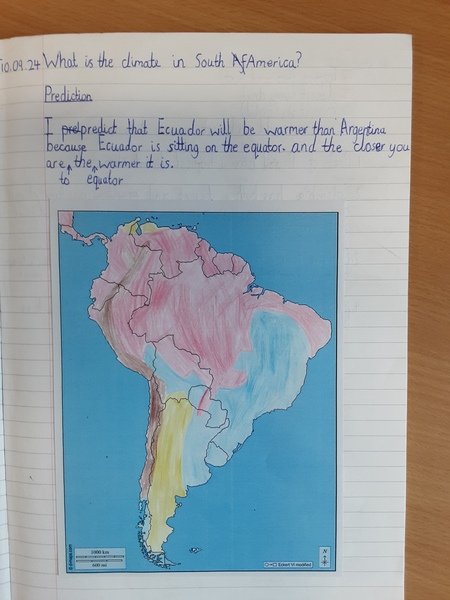 10.09.24 What is the climate in South AfAmerica?
Prediction
I prelpredict that Ecuador will be warmer than Argentina
because Ecuador is sitting on the equator. and the closer you
are to the equator warmer it is.
1000 km
600 mi
Eckert VI modified
N